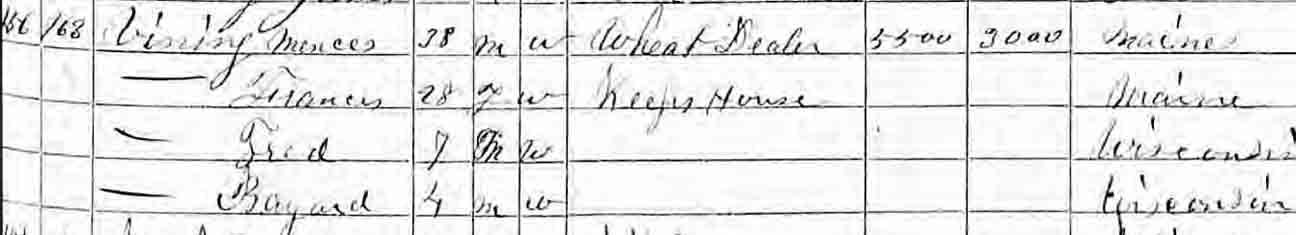 168 Vining Mences 38 m w Wheat Dealer 5500 3000 Maine
Frances 28 F w Keeps House Maine
Fred 7 M w Wisconsin
Bayard 4 m w Wisconsin